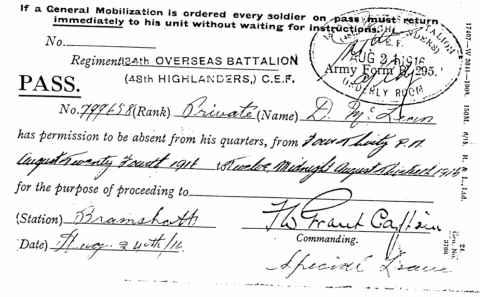 If a General Mobilization is ordered every soldier on pass must return
immediately to his unit without waiting for instructions.
No.
Regiment 134th OVERSEAS BATTALION
(48th HIGHLANDERS,) C.E.F.
C.E.F.
AUG 24 1916
Army Form B. 295.
ORDERLY ROOM
PASS.
No. 799658 (Rank) Private (Name) D. McLean
has permission to be absent from his quarters, from Four thirty P.M.
August Twenty Fourth 1916 Twelve Midnight August 1916
for the purpose of proceeding to
(Station) Bramshott
F W Grant Captain
Commanding.
Date) Aug. 24th/16
Special Leave